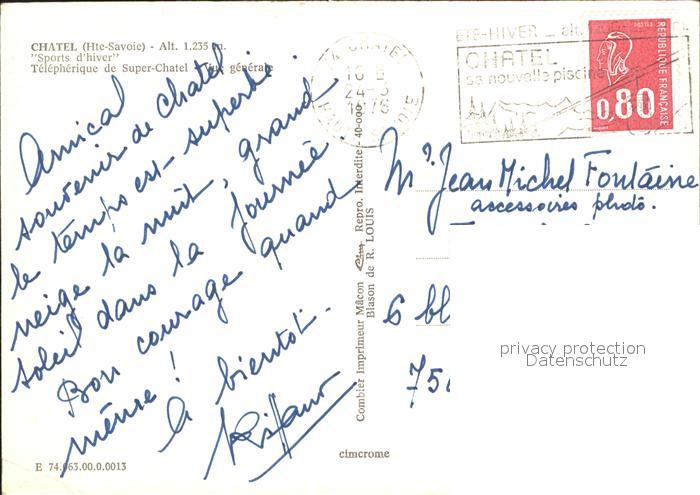 CHATEL (Hte-Savoie) - Alt. 1.235 m.
"Sports d'hiver"
Téléphérique de Super-Chatel - Vue générale
Amical
souvenir de Chatel
le temps est superbe.
neige la nuit, grand
soleil dans la journée.
Bon courage quand
même !
à bientôt.
E 74.063.00.0.0013
Combier Imprimeur Mâcon Cim Repro. Interdite - 40-000
Blason de R. LOUIS
cimcrome
CHATEL
24-3
1976
ETE-HIVER
CHATEL
sa nouvelle piscine
POSTES
REPUBLIQUE FRANÇAISE
0,80
Mr Jean Michel Fontaine
accessoires photo.
6 bl
75
privacy protection
Datenschutz